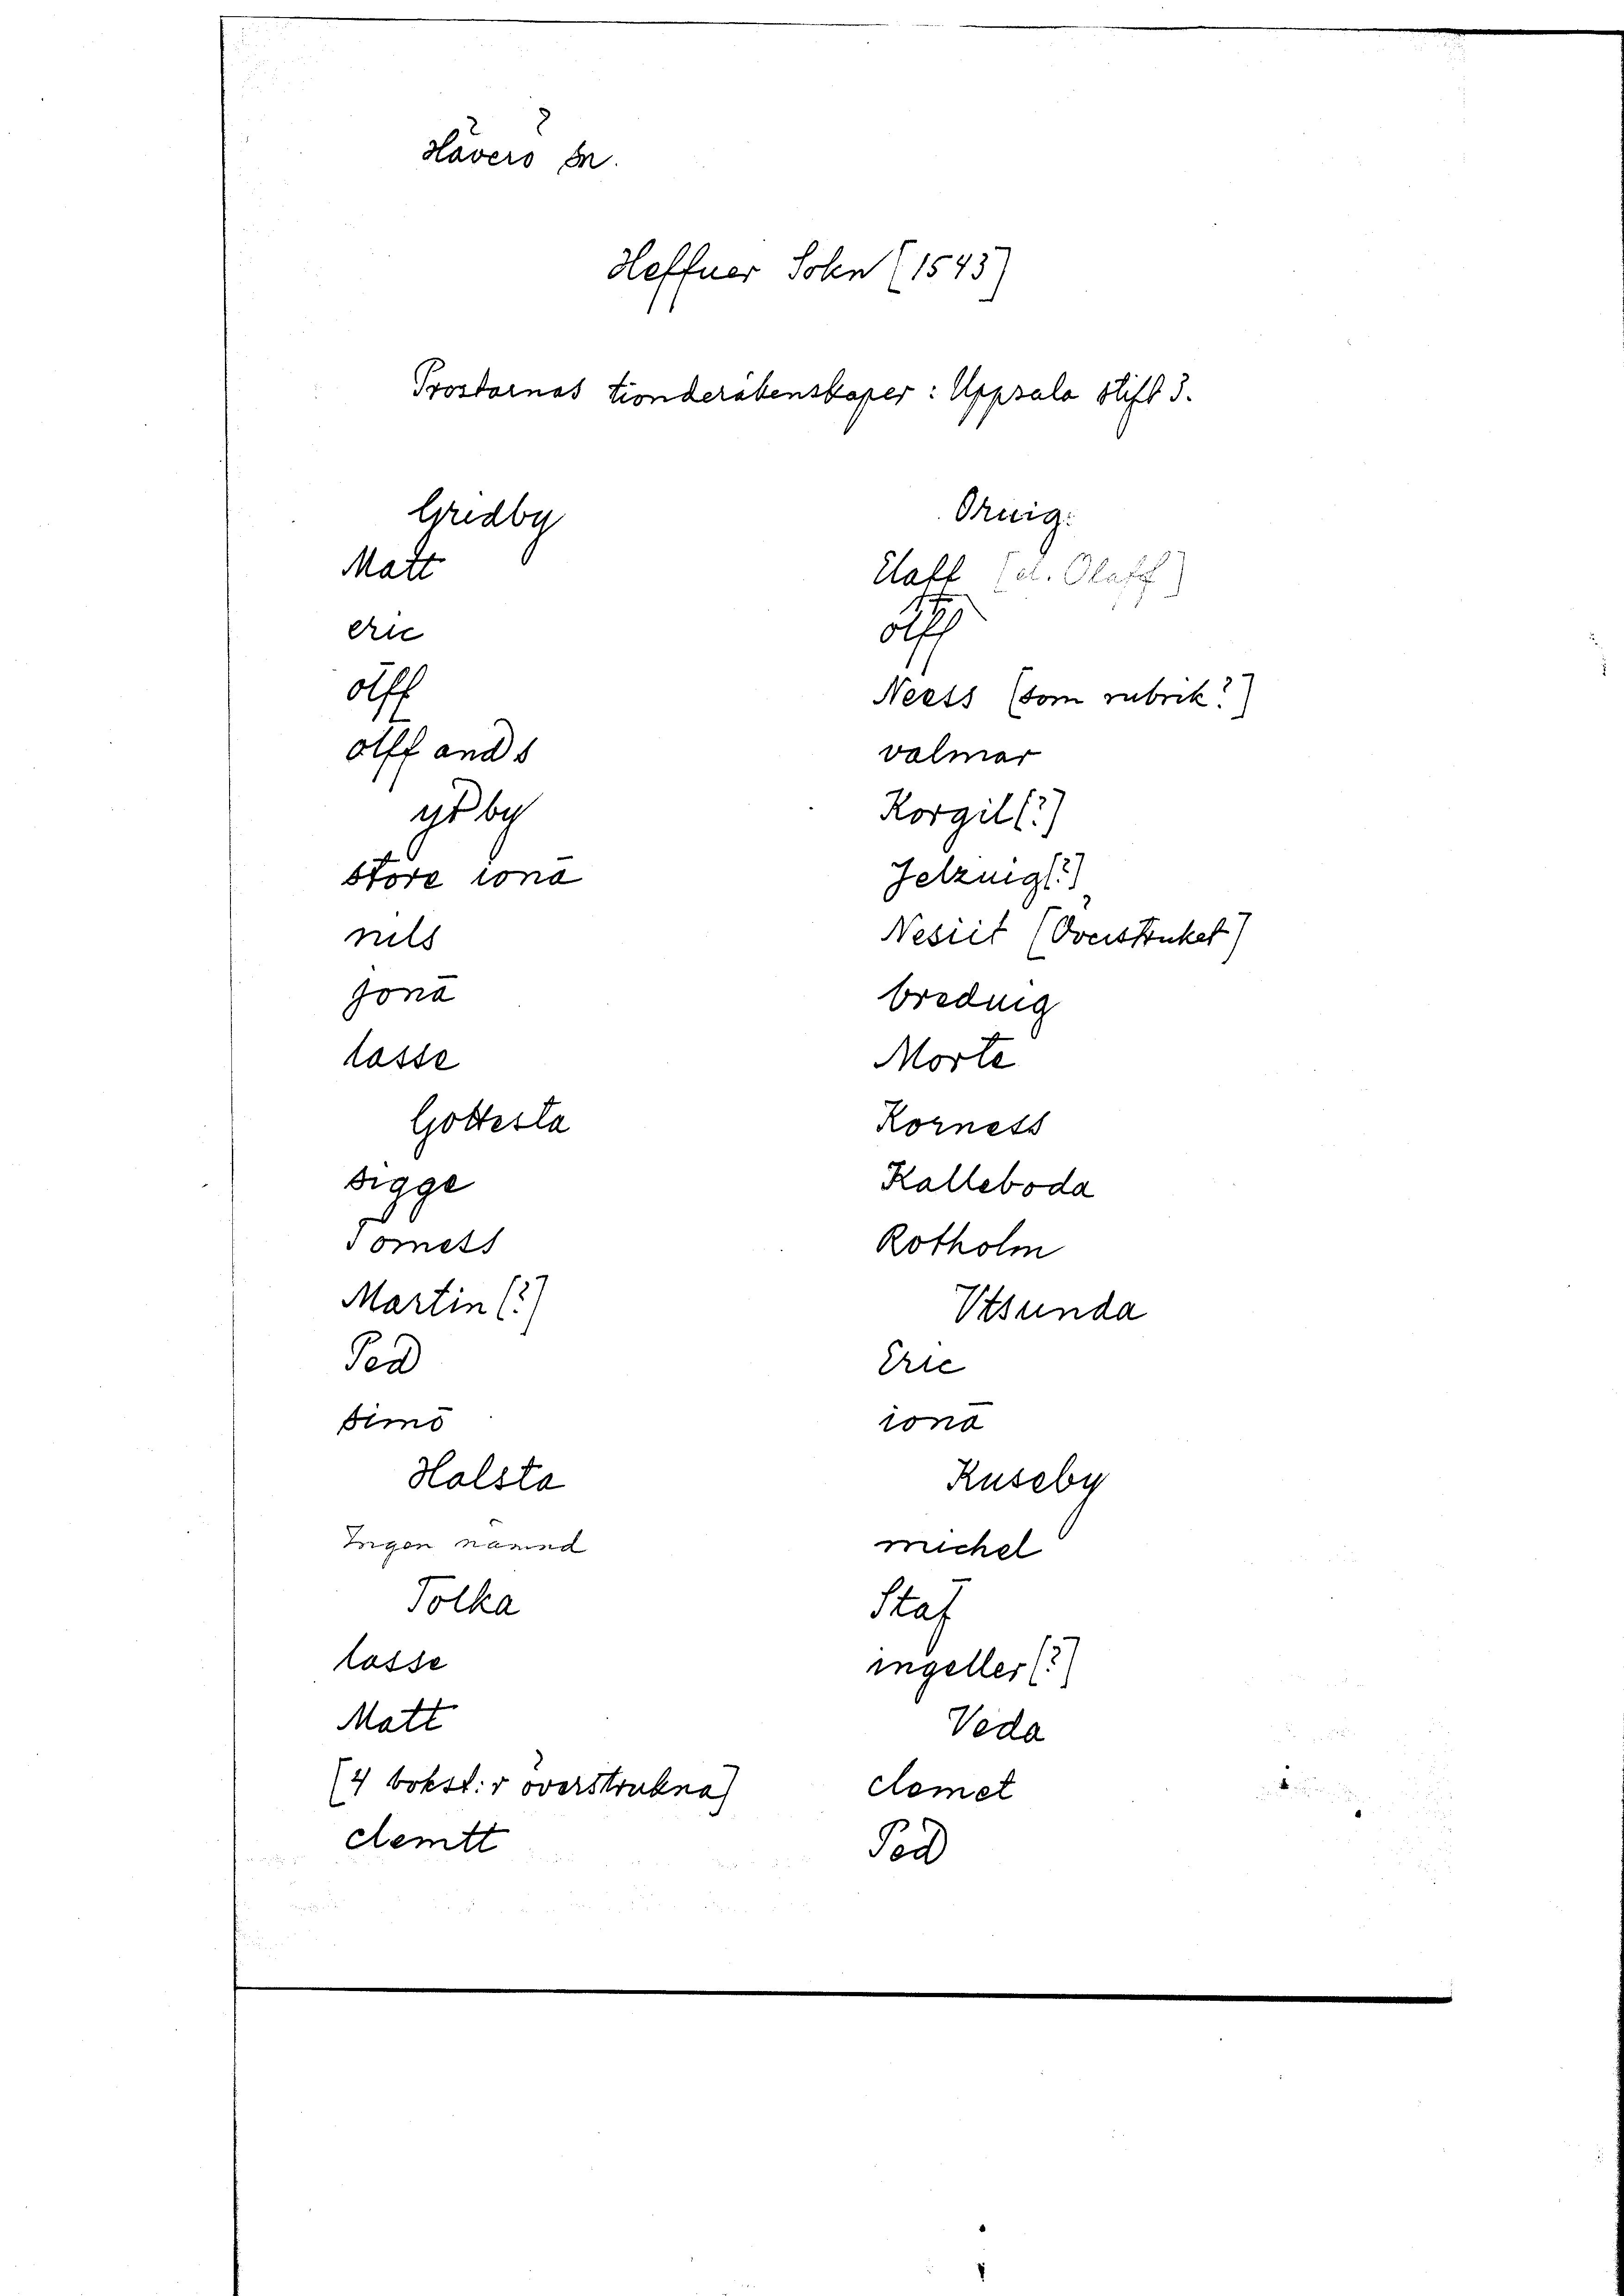 Häverö sn.
Heffner Sokn (1543)
Prostarnas tionderäkenskaper: Uppsala stift 3.
Gridby
Matt
eric
olff
olff ands
ytby
store ionā
nils
Jonā
lasse
Gottesta
sigge
Tomess
Martin (?)
Ped
simō
Halsta
Ingen nämnd
Tolka
lasse
Matt
(4 bokst:r överstrukna)
clemtt
Ornig:
Elaff (el. Olaff)
olff
Neess (som rubrik?)
valmar
Korgil (?)
Jelznig (?)
Nesiit (Överstruket)
brednig
Morte
Korness
Kalleboda
Rotholm
Vtsunda
Eric
ionā
Kuseby
michel
Staf
ingeller (?)
Veda
clemet
Ped